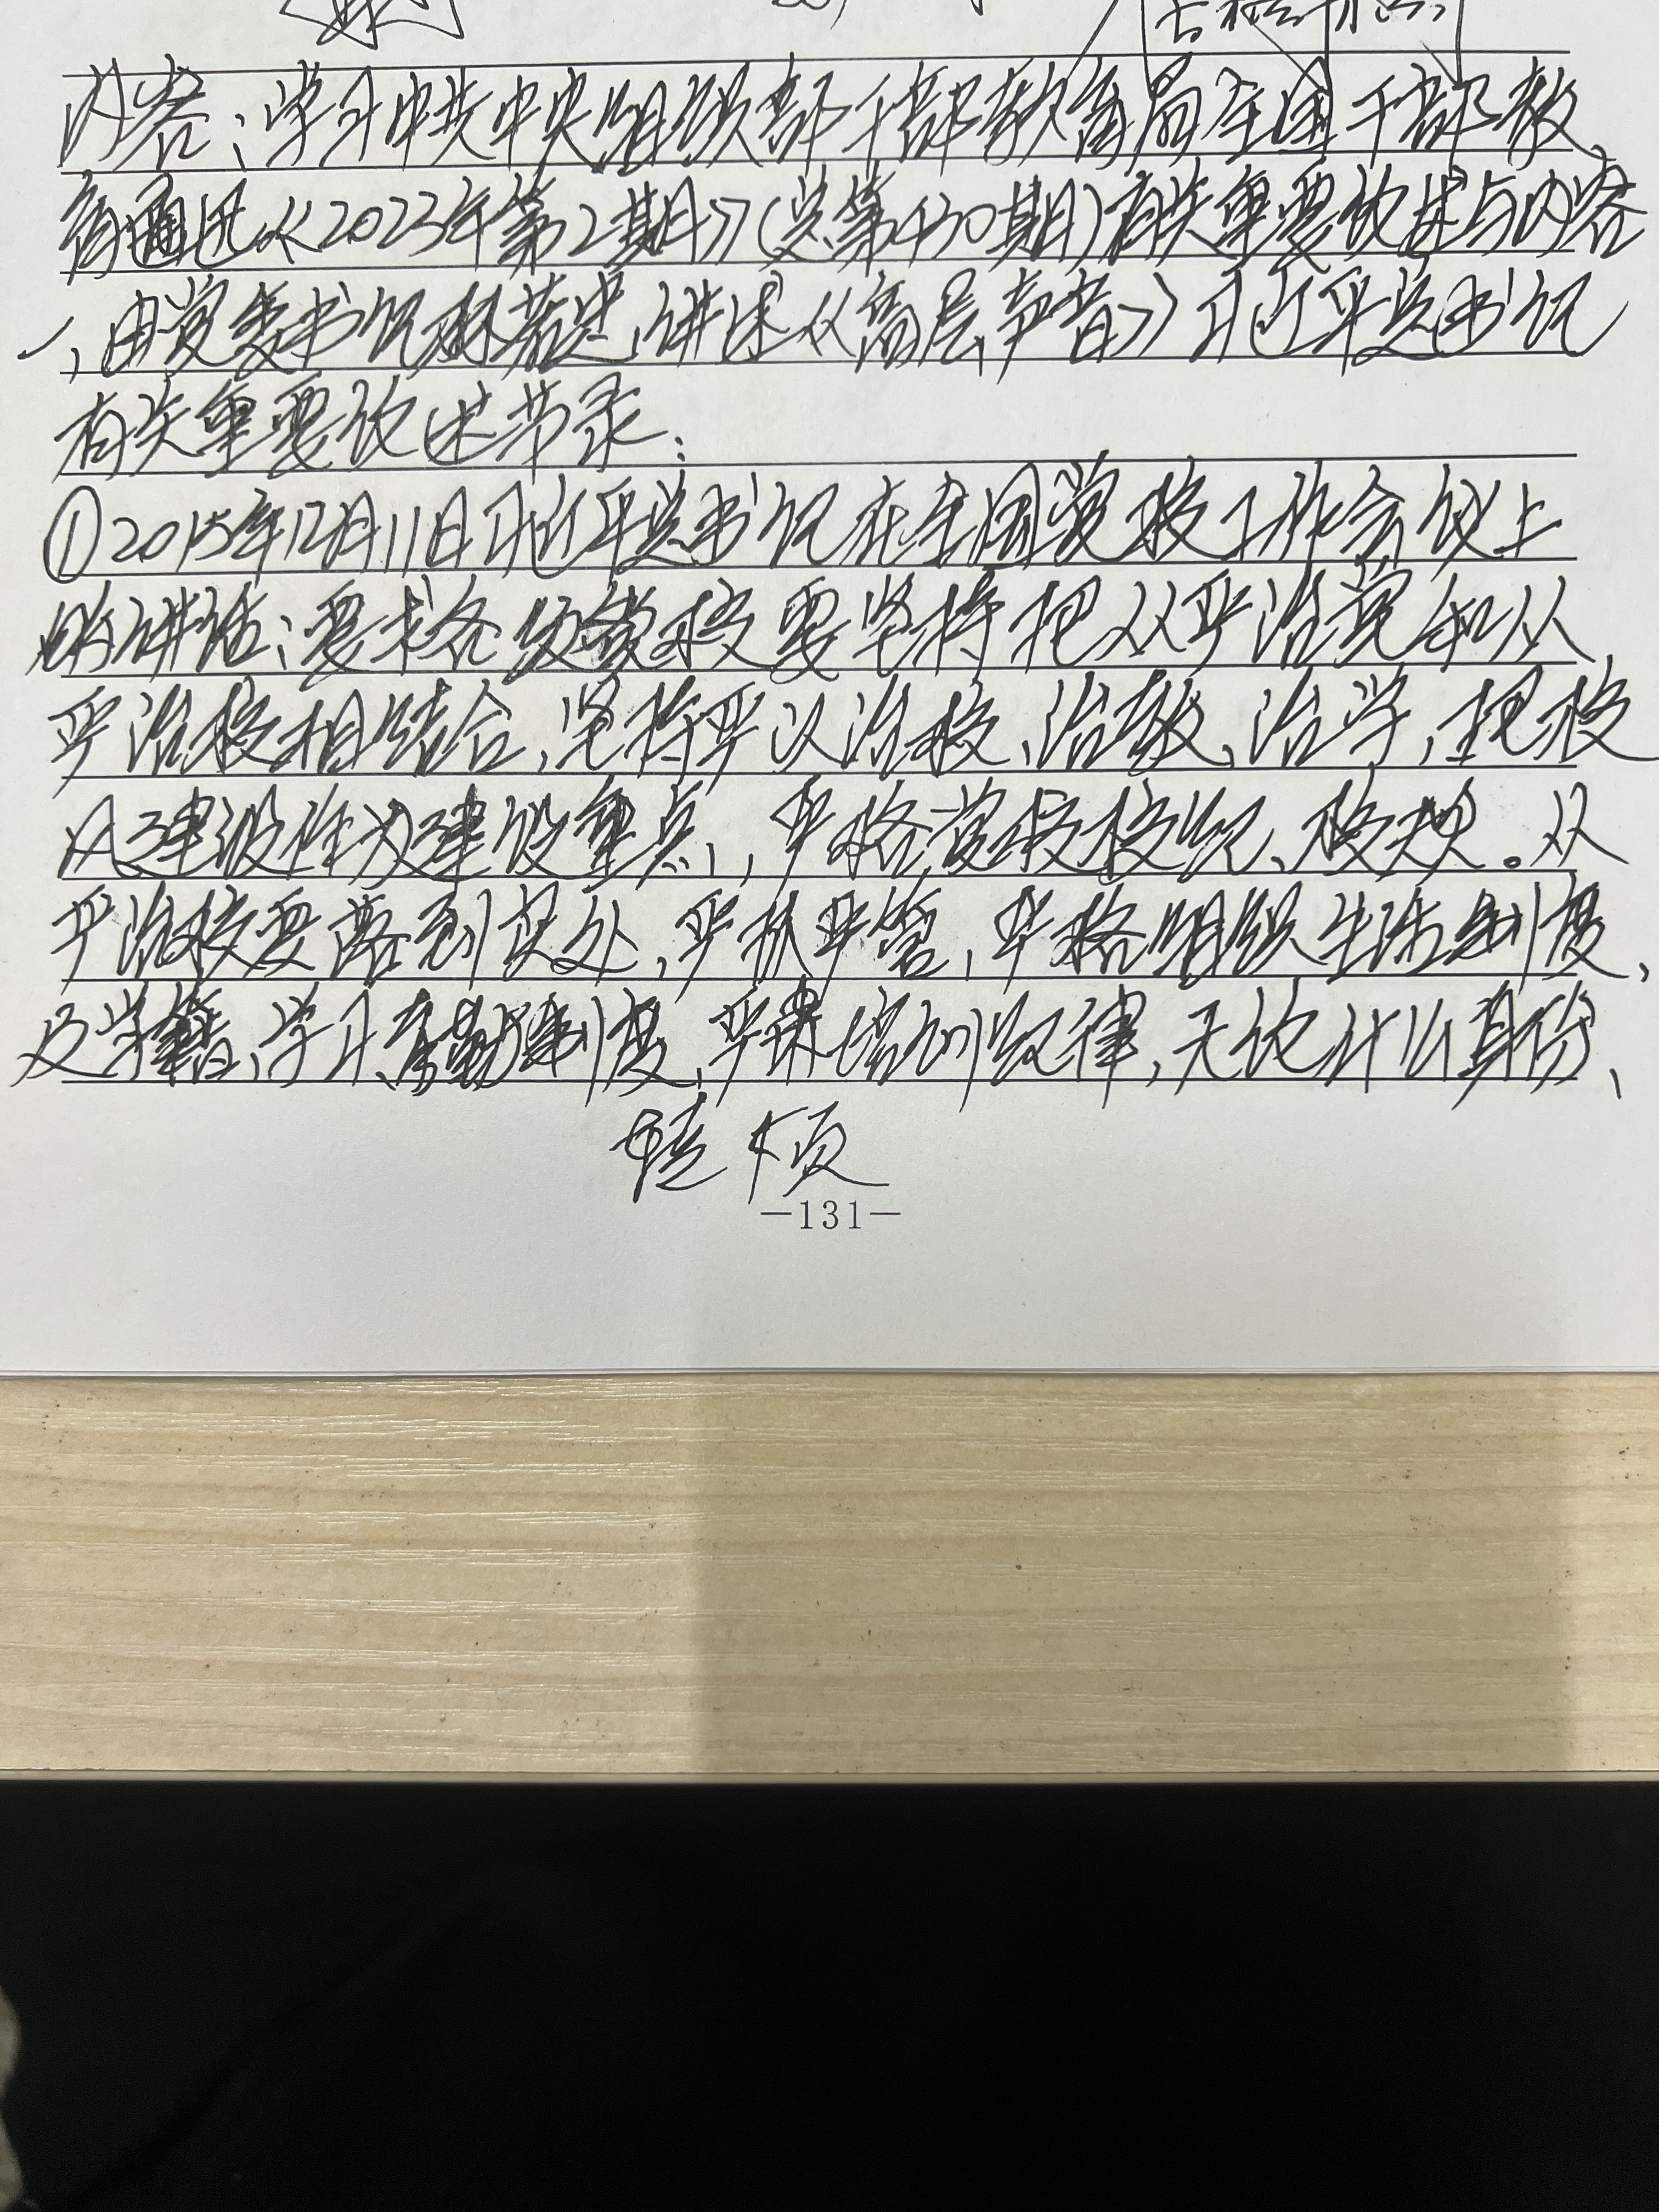 内容:学习中共中央组织部干部教育局全国干部教
育通讯《2023年第2期》(总第430期)有关重要论述与内容
一、由党委书记 讲述《高层声音》习近平总书记
有关重要论述节录:
①2015年12月11日习近平总书记在全国党校工作会议上
的讲话:要求各级党校要坚持把从严治党和从
严治校相结合,坚持严以治校、治教、治学,把校
风建设作为建设重点,严格党校校纪、校规。从
严治校要落到实处,严抓严管,严格组织生活制度、
及学籍、学习、考勤制度,严肃培训纪律,无论什么身份、
转下页
—131—